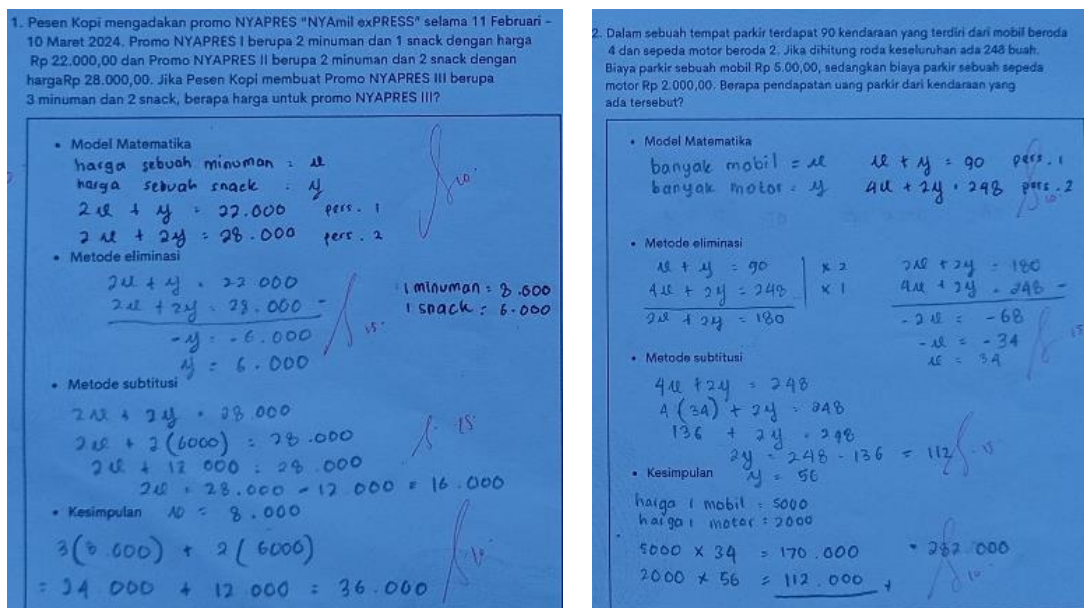 1. Pesen Kopi mengadakan promo NYAPRES "NYAmil exPRESS" selama 11 Februari -
10 Maret 2024. Promo NYAPRES I berupa 2 minuman dan 1 snack dengan harga
Rp 22.000,00 dan Promo NYAPRES II berupa 2 minuman dan 2 snack dengan
hargaRp 28.000,00. Jika Pesen Kopi membuat Promo NYAPRES III berupa
3 minuman dan 2 snack, berapa harga untuk promo NYAPRES III?
• Model Matematika
harga sebuah minuman = x
harga sebuah snack : y
2x + y = 22.000 pers. 1
2x + 2y = 28.000 pers. 2
10
• Metode eliminasi
2x + y = 22 000
2x + 2y = 28.000 -
-y = -6.000
y = 6.000
15
1 minuman = 8.000
1 snack : 6.000
• Metode subtitusi
2x + 2y = 28 000
2x + 2(6000) = 28.000
2x + 12 000 = 28.000
2x = 28.000 - 12.000 = 16.000
15
• Kesimpulan x = 8.000
3(8.000) + 2(6000)
= 24 000 + 12 000 = 36.000
10
2. Dalam sebuah tempat parkir terdapat 90 kendaraan yang terdiri dari mobil beroda
4 dan sepeda motor beroda 2. Jika dihitung roda keseluruhan ada 248 buah.
Biaya parkir sebuah mobil Rp 5.00,00, sedangkan biaya parkir sebuah sepeda
motor Rp 2.000,00. Berapa pendapatan uang parkir dari kendaraan yang
ada tersebut?
• Model Matematika
banyak mobil = x x + y = 90 pers. 1
banyak motor = y 4x + 2y = 248 pers. 2
10
• Metode eliminasi
x + y = 90 | x 2
4x + 2y = 248 | x 1
2x + 2y = 180
2x + 2y = 180
4x + 2y = 248 -
-2x = -68
-x = -34
x = 34
15
• Metode subtitusi
4x + 2y = 248
4(34) + 2y = 248
136 + 2y = 248
2y = 248 - 136 = 112
y = 56
15
• Kesimpulan
harga 1 mobil = 5000
harga 1 motor = 2000
5000 x 34 = 170.000
2000 x 56 = 112.000 +
= 282.000
10